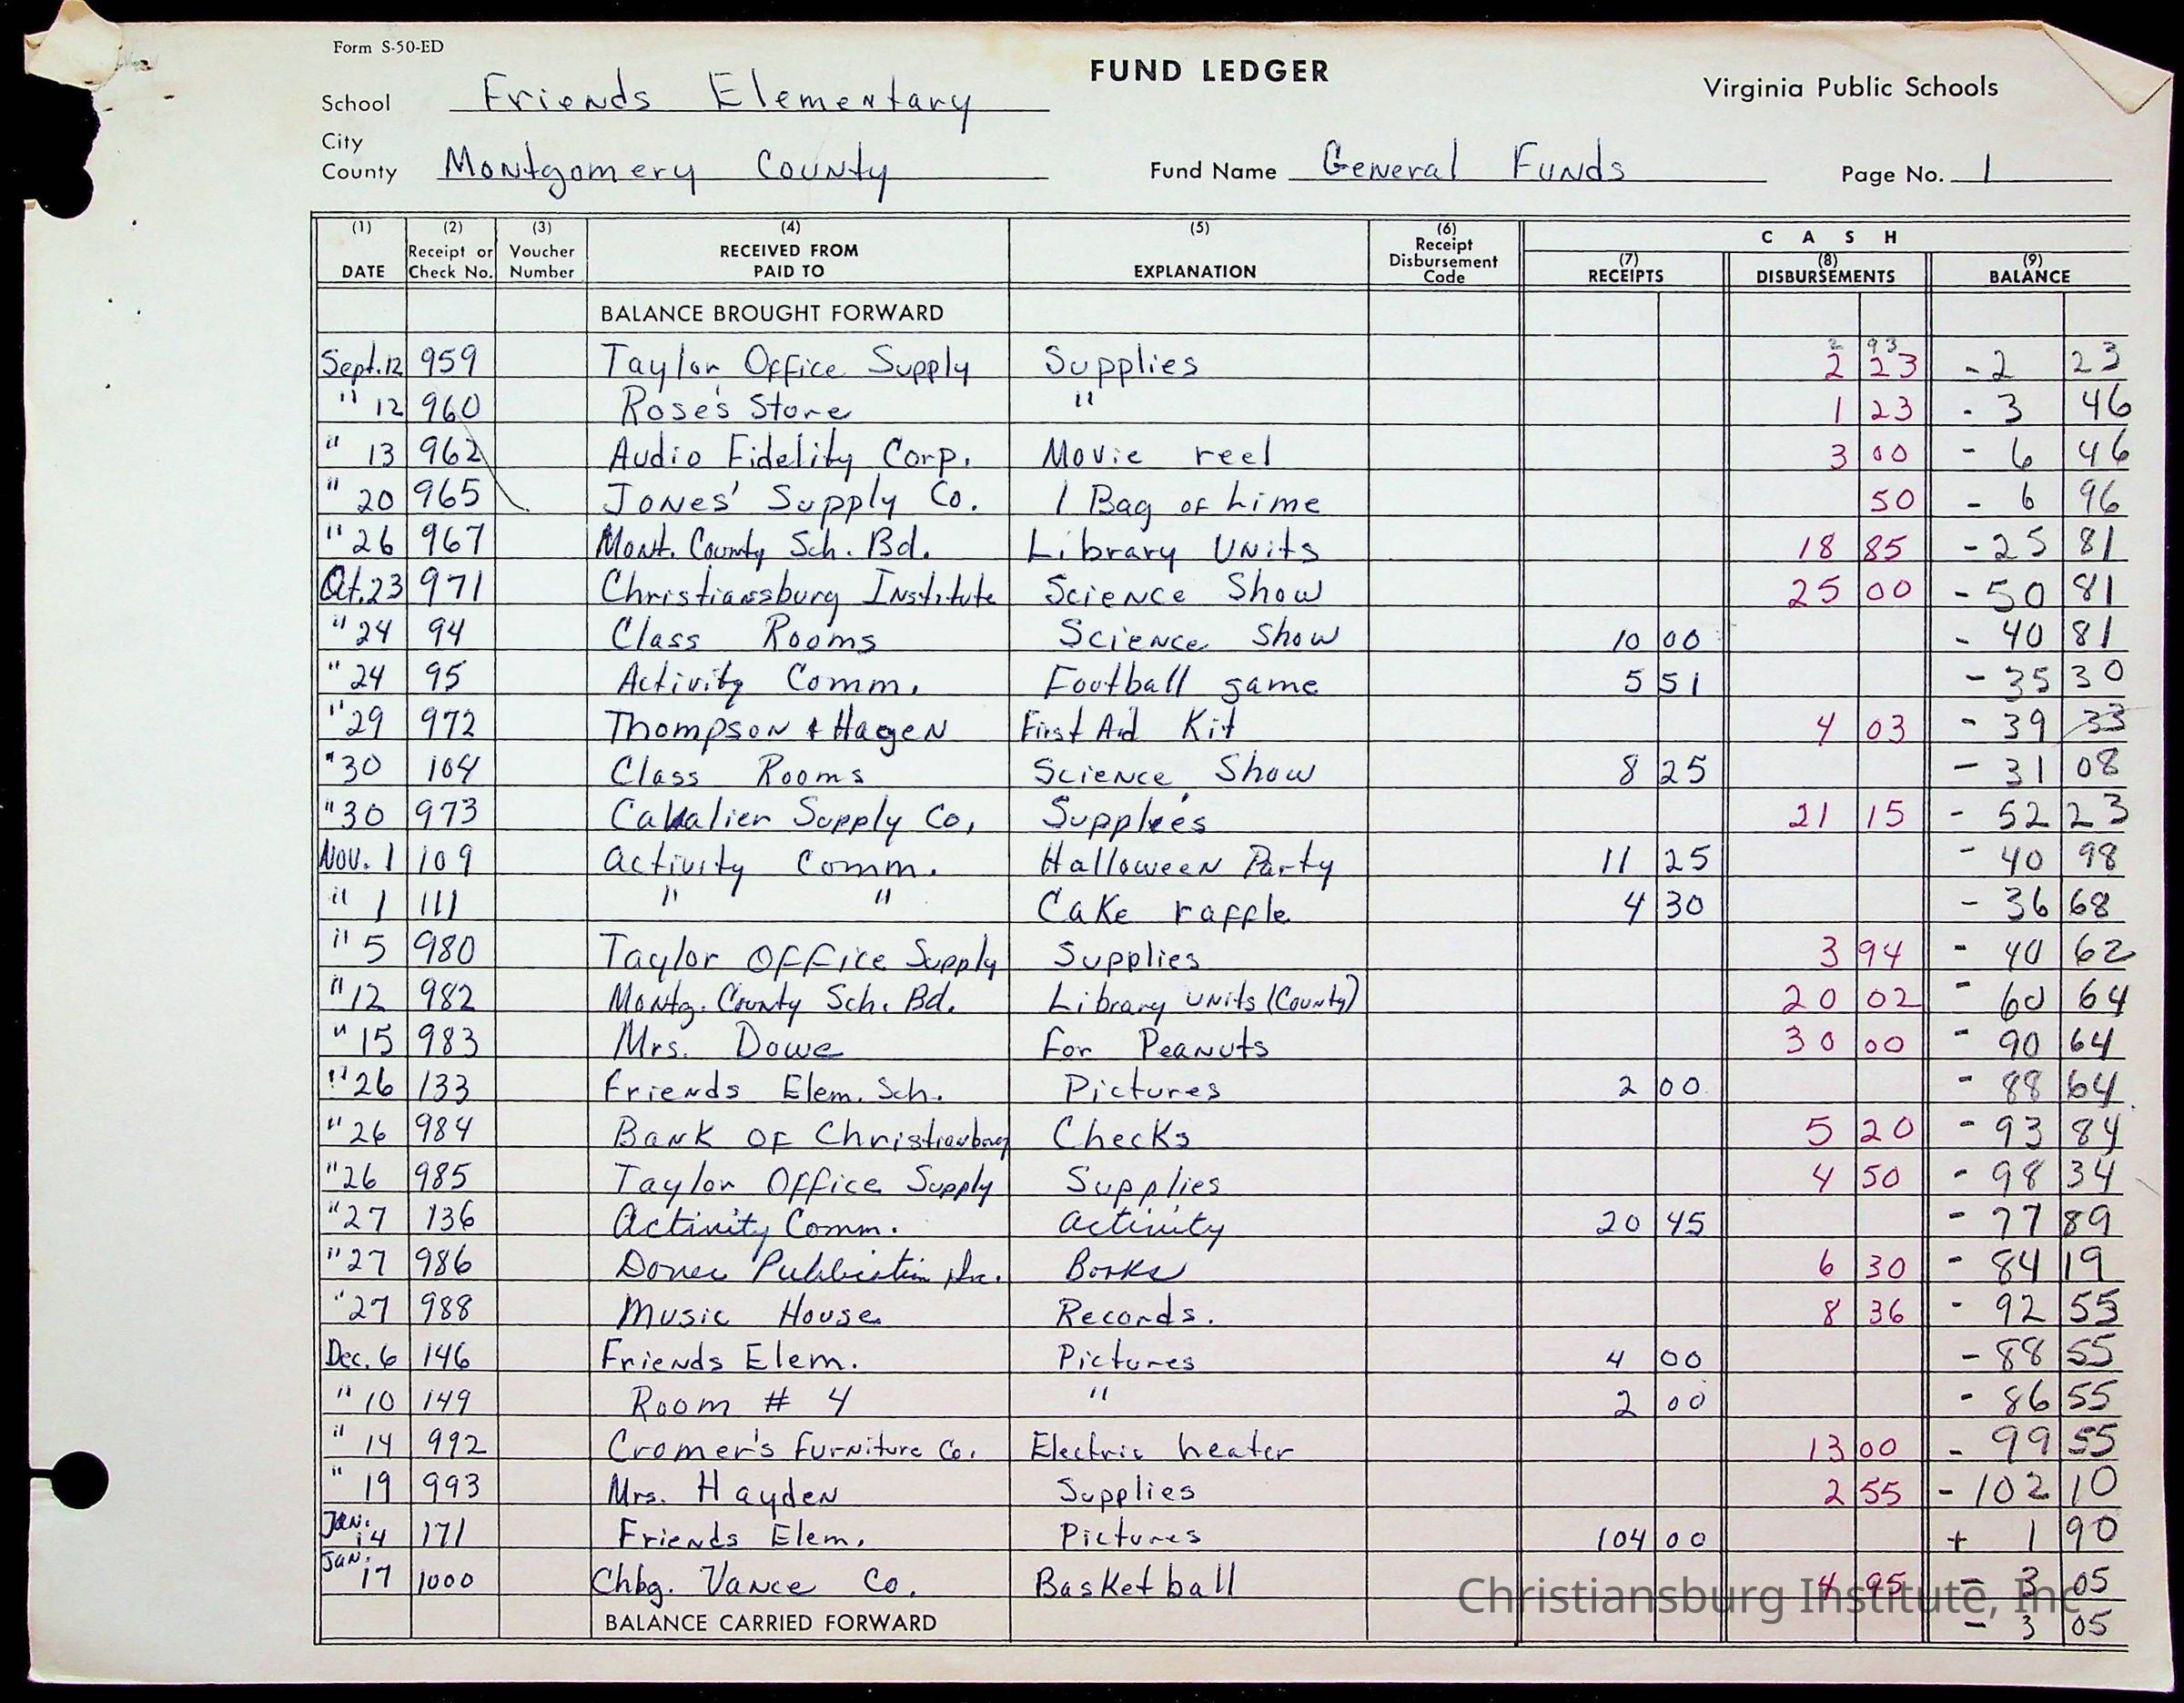 Form S-50-ED
FUND LEDGER
Virginia Public Schools
School Friends Elementary
City
County Montgomery County Fund Name General Funds Page No. 1
(1) DATE (2) Receipt or Check No. (3) Voucher Number (4) RECEIVED FROM PAID TO (5) EXPLANATION (6) Receipt Disbursement Code CASH (7) RECEIPTS (8) DISBURSEMENTS (9) BALANCE
BALANCE BROUGHT FORWARD
2 93
Sept. 12 959 Taylor Office Supply Supplies 2 23 - 2 23
" 12 960 Rose's Store " 1 23 - 3 46
" 13 962 Audio Fidelity Corp. Movie reel 3 00 - 6 46
" 20 965 Jones' Supply Co. 1 Bag of Lime 50 - 6 96
" 26 967 Mont. County Sch. Bd. Library Units 18 85 - 25 81
Oct. 23 971 Christiansburg Institute Science Show 25 00 - 50 81
" 24 94 Class Rooms Science Show 10 00 - 40 81
" 24 95 Activity Comm. Football game 5 51 - 35 30
" 29 972 Thompson & Hagen First Aid Kit 4 03 - 39 33
" 30 104 Class Rooms Science Show 8 25 - 31 08
" 30 973 Cavalier Supply Co. Supplies 21 15 - 52 23
Nov. 1 109 Activity Comm. Halloween Party 11 25 - 40 98
" 1 111 " " Cake raffle 4 30 - 36 68
" 5 980 Taylor Office Supply Supplies 3 94 - 40 62
" 12 982 Montg. County Sch. Bd. Library units (County) 20 02 - 60 64
" 15 983 Mrs. Dowe for Peanuts 30 00 - 90 64
" 26 133 Friends Elem. Sch. Pictures 2 00 - 88 64
" 26 984 Bank of Christiansburg Checks 5 20 - 93 84
" 26 985 Taylor Office Supply Supplies 4 50 - 98 34
" 27 136 Activity Comm. Activity 20 45 - 77 89
" 27 986 Publication Inc. Books 6 30 - 84 19
" 27 988 Music House Records. 8 36 - 92 55
Dec. 6 146 Friends Elem. Pictures 4 00 - 88 55
" 10 149 Room # 4 " 2 00 - 86 55
" 14 992 Cromer's Furniture Co. Electric heater 13 00 - 99 55
" 19 993 Mrs. Hayden Supplies 2 55 - 102 10
Jan. 14 171 Friends Elem. Pictures 104 00 + 1 90
Jan. 17 1000 Chbg. Vance Co. Basketball 4 95 - 3 05
BALANCE CARRIED FORWARD - 3 05
Christiansburg Institute, Inc